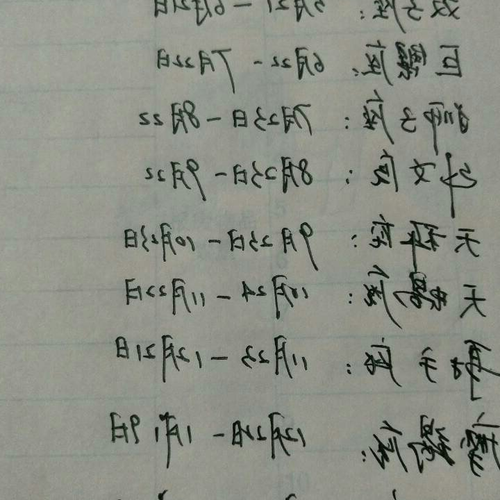 双子座：5月21-6月21日
巨蟹座：6月22-7月22日
狮子座：7月23日-8月22
处女座：8月23日-9月22
天秤座：9月23日-10月23日
天蝎座：10月24-11月22日
射手座：11月23-12月21日
座：12月22日-1月19日